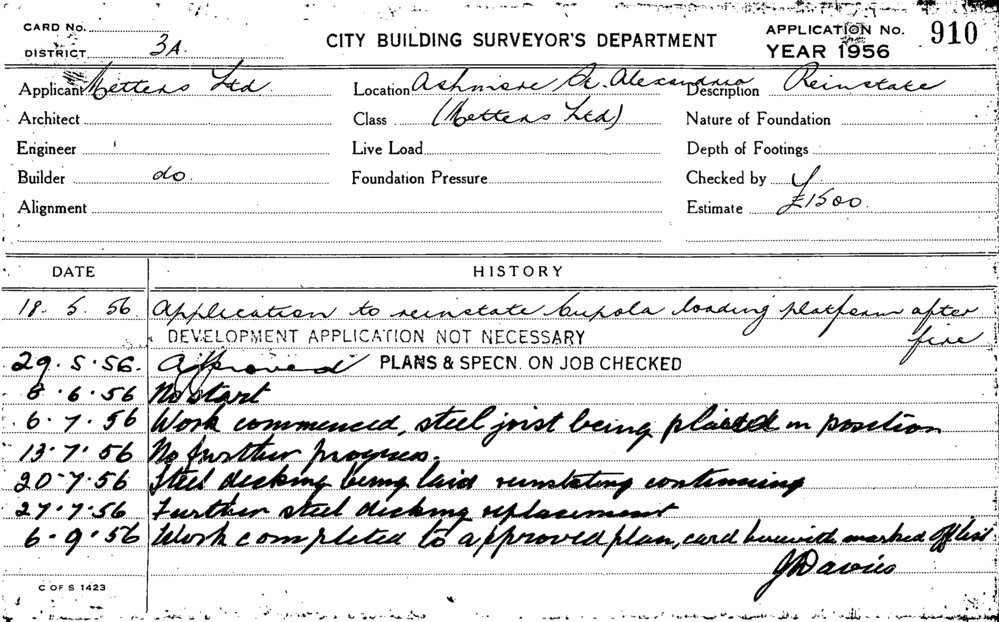 CARD No.
DISTRICT 3A.
CITY BUILDING SURVEYOR'S DEPARTMENT
APPLICATION No. 910
YEAR 1956
Applicant Metters Ltd. Location Ashmore St. Alexandria Description Reinstate
Architect Class (Metters Ltd) Nature of Foundation
Engineer Live Load Depth of Footings
Builder do. Foundation Pressure Checked by
Alignment Estimate £1500.
DATE HISTORY
18. 5. 56 Application to reinstate cupola loading platform after
fire
DEVELOPMENT APPLICATION NOT NECESSARY
29. 5. 56. Approved PLANS & SPECN. ON JOB CHECKED
8. 6. 56 No start
6. 7. 56 Work commenced, steel joist being placed in position
13. 7. 56 No further progress.
20. 7. 56 Steel decking being laid reinstating continuing
27. 7. 56 Further steel decking replacement
6. 9. 56 Work completed to approved plan, card herewith marked off list
J Davies
C OF S 1423